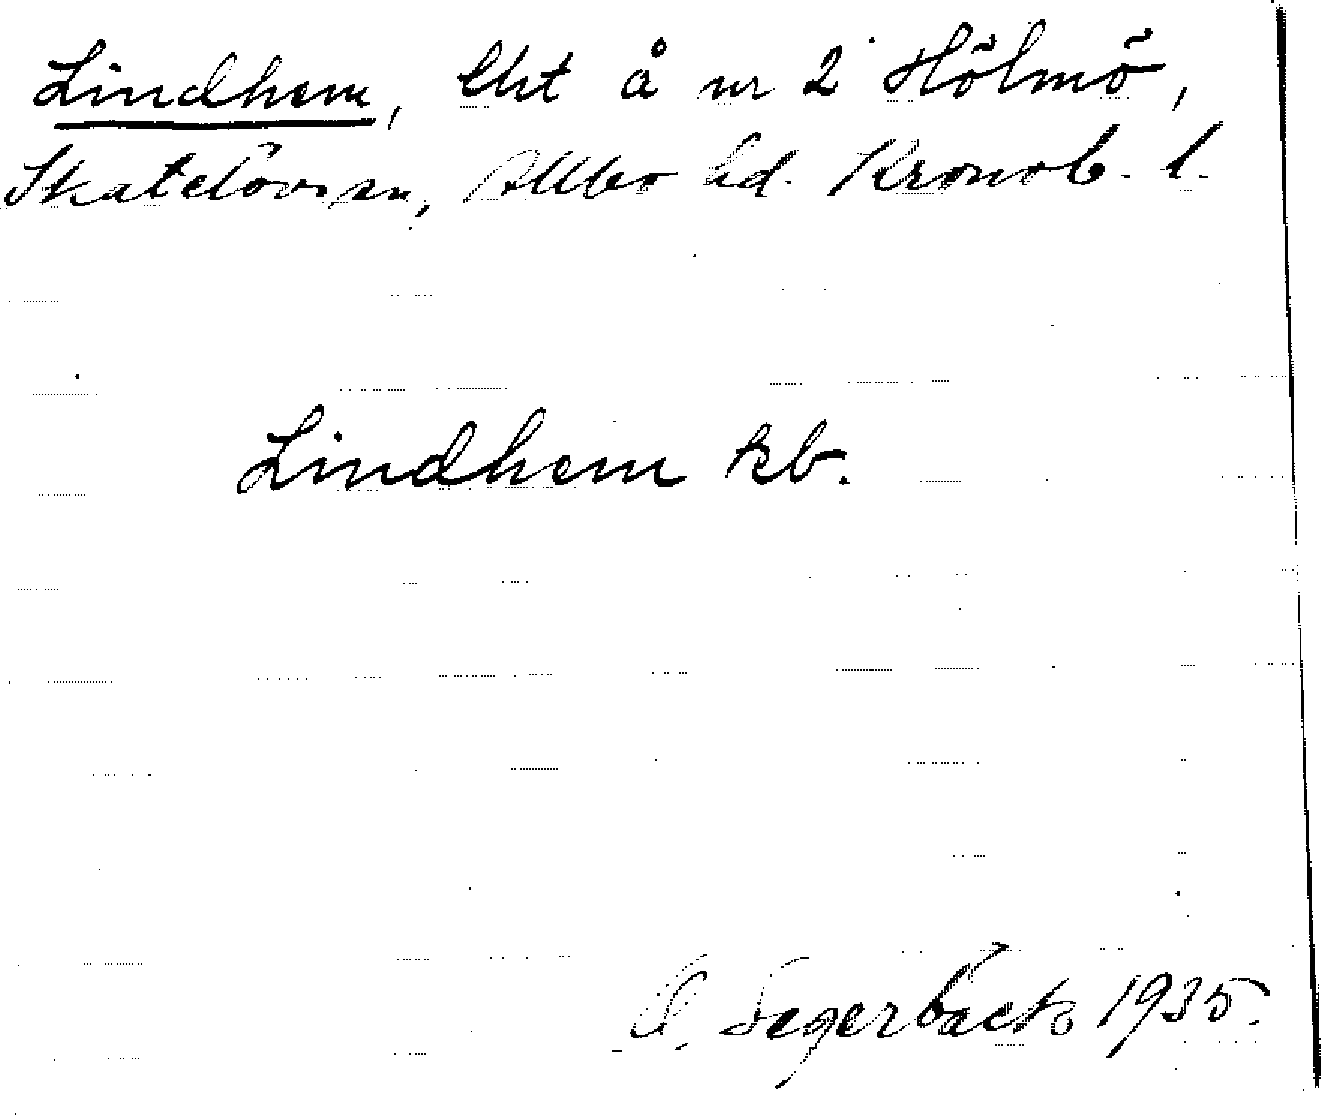 Lindhem, lht å nr 2 Hölmö,
Skatelövs sn, Allbo hd. Kronob. l.
Lindhem kb.
Segerbäck 1935.